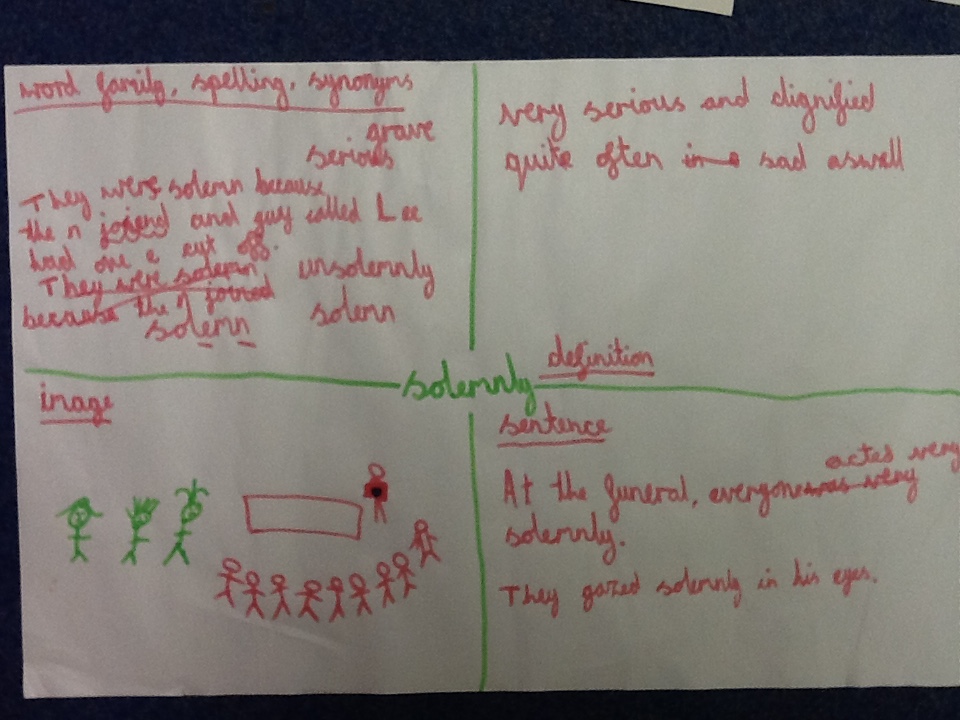 word family, spelling, synonyms
grave
serious
They were solemn because
the n joiend and guy called Lee
had one e cut off.
They were solemn
because the n joined
solemn
unsolemnly
solemn
very serious and dignified
quite often sad aswell
definition
solemnly
image
sentence
acted very
At the funeral, everyone was very
solemnly.
They gazed solemnly in his eyes.